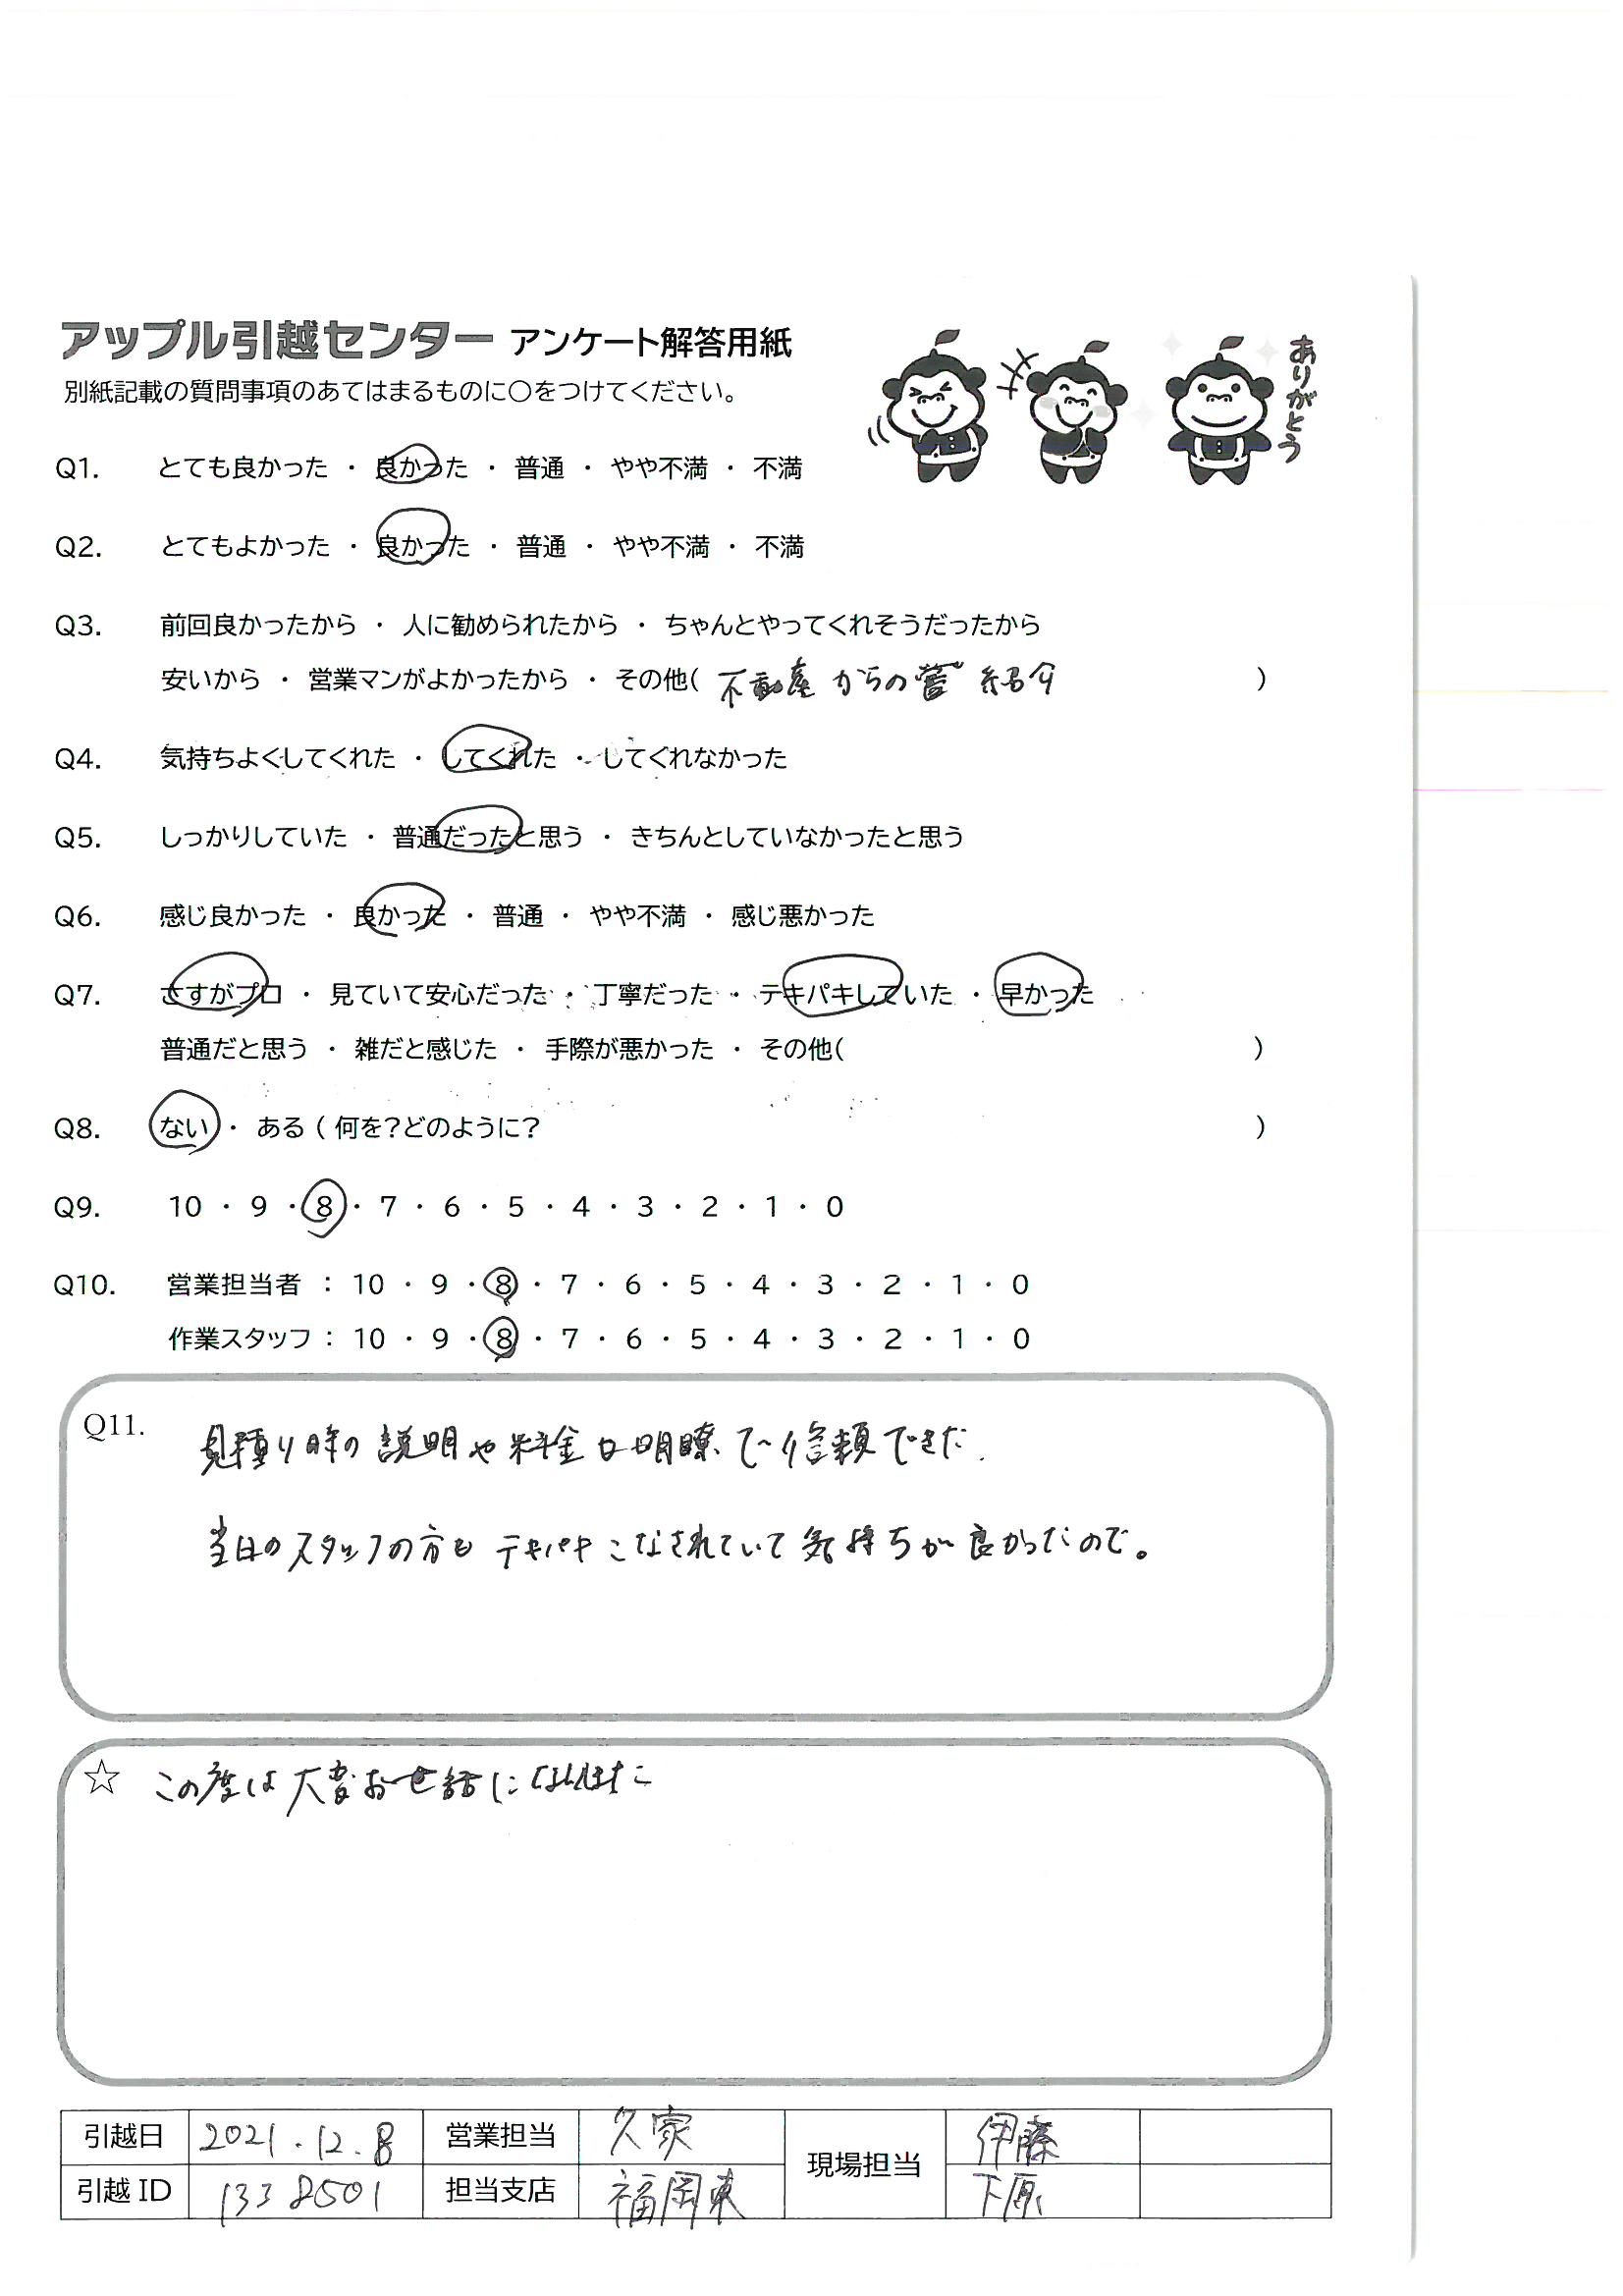 アップル引越センター アンケート解答用紙
別紙記載の質問事項のあてはまるものに○をつけてください。
ありがとう
Q1. とても良かった ・ 良かった ・ 普通 ・ やや不満 ・ 不満
Q2. とてもよかった ・ 良かった ・ 普通 ・ やや不満 ・ 不満
Q3. 前回良かったから ・ 人に勧められたから ・ ちゃんとやってくれそうだったから
安いから ・ 営業マンがよかったから ・ その他( 不動産からの 紹介 )
Q4. 気持ちよくしてくれた ・ してくれた ・ してくれなかった
Q5. しっかりしていた ・ 普通だったと思う ・ きちんとしていなかったと思う
Q6. 感じ良かった ・ 良かった ・ 普通 ・ やや不満 ・ 感じ悪かった
Q7. さすがプロ ・ 見ていて安心だった ・ 丁寧だった ・ テキパキしていた ・ 早かった
普通だと思う ・ 雑だと感じた ・ 手際が悪かった ・ その他( )
Q8. ない ・ ある ( 何を?どのように? )
Q9. 10 ・ 9 ・ 8 ・ 7 ・ 6 ・ 5 ・ 4 ・ 3 ・ 2 ・ 1 ・ 0
Q10. 営業担当者 : 10 ・ 9 ・ 8 ・ 7 ・ 6 ・ 5 ・ 4 ・ 3 ・ 2 ・ 1 ・ 0
作業スタッフ : 10 ・ 9 ・ 8 ・ 7 ・ 6 ・ 5 ・ 4 ・ 3 ・ 2 ・ 1 ・ 0
Q11. 見積り時の説明や料金も明瞭で信頼できた.
当日のスタッフの方もテキパキこなされていて気持ちが良かったので。
☆ この度は大変お世話になりました
引越日 2021.12.8 営業担当 久家 現場担当 伊藤
引越 ID 1338501 担当支店 福岡東 下原